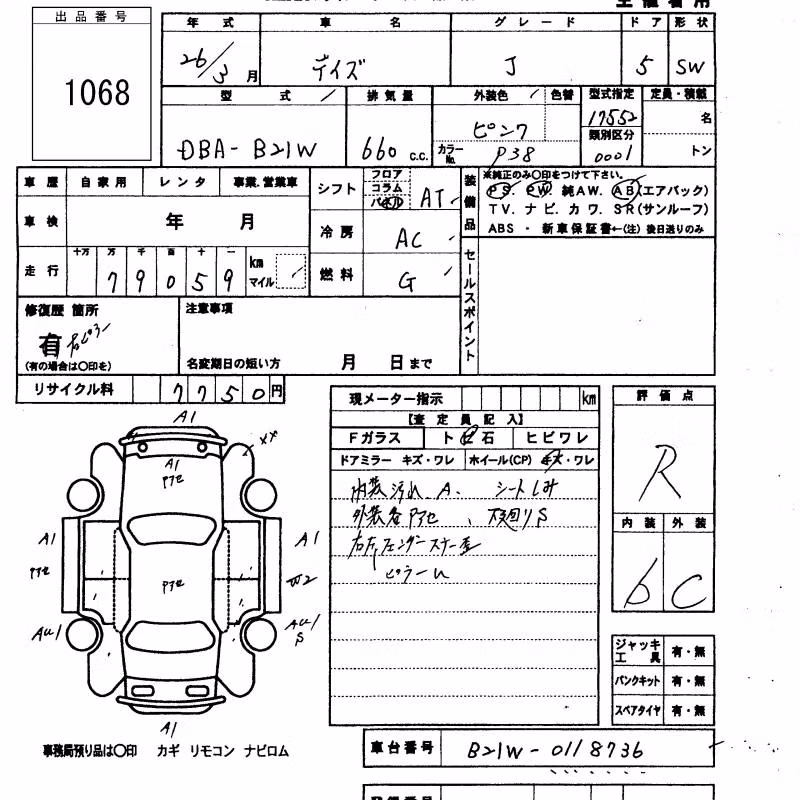 出品番号
1068
年式 車名 グレード ドア 形状
26/3月 デイズ J 5 SW
型式 排気量 外装色 色替 型式指定 定員・積載
DBA-B21W 660 c.c. ピンク 17552 名
カラーNo. P38 類別区分 0001 トン
車歴 自家用 レンタ 事業.営業車
車検 年 月
走行 十万 万 千 百 十 一
79059 km マイル
シフト フロア コラム パネル AT
冷房 AC
燃料 G
装備品 ※純正のみ〇印をつけて下さい。
PS. PW. 純AW. AB(エアバック)
TV. ナビ. カワ. SR(サンルーフ)
ABS ・ 新車保証書←(注) 後日送りのみ
セールスポイント
修復歴 箇所
有 右ピラー
(有の場合は〇印を)
注意事項
名変期日の短い方 月 日まで
リサイクル料 7750円
現メーター指示 km
【査定員記入】
Fガラス トビ石 ヒビワレ
ドアミラー キズ・ワレ ホイール(CP) キズ・ワレ
内装汚れ A、 シートしみ
外装各Pアセ 、 下廻りS
ピラーU
評価点
R
内装 外装
b C
ジャッキ工具 有・無
パンクキット 有・無
スペアタイヤ 有・無
A1
XX
A1
Pアセ
A1 A1
Pアセ Pアセ W2
AU1 AU1
S
A1
事務局預り品は〇印 カギ リモコン ナビロム
車台番号 B21W-0118736